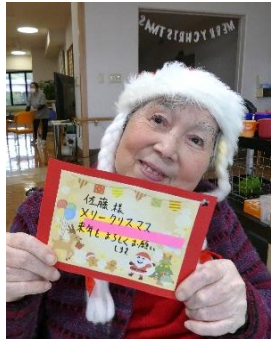 MERRY CHRISTMAS
佐藤様
メリークリスマス
来年もよろしくお願い
します